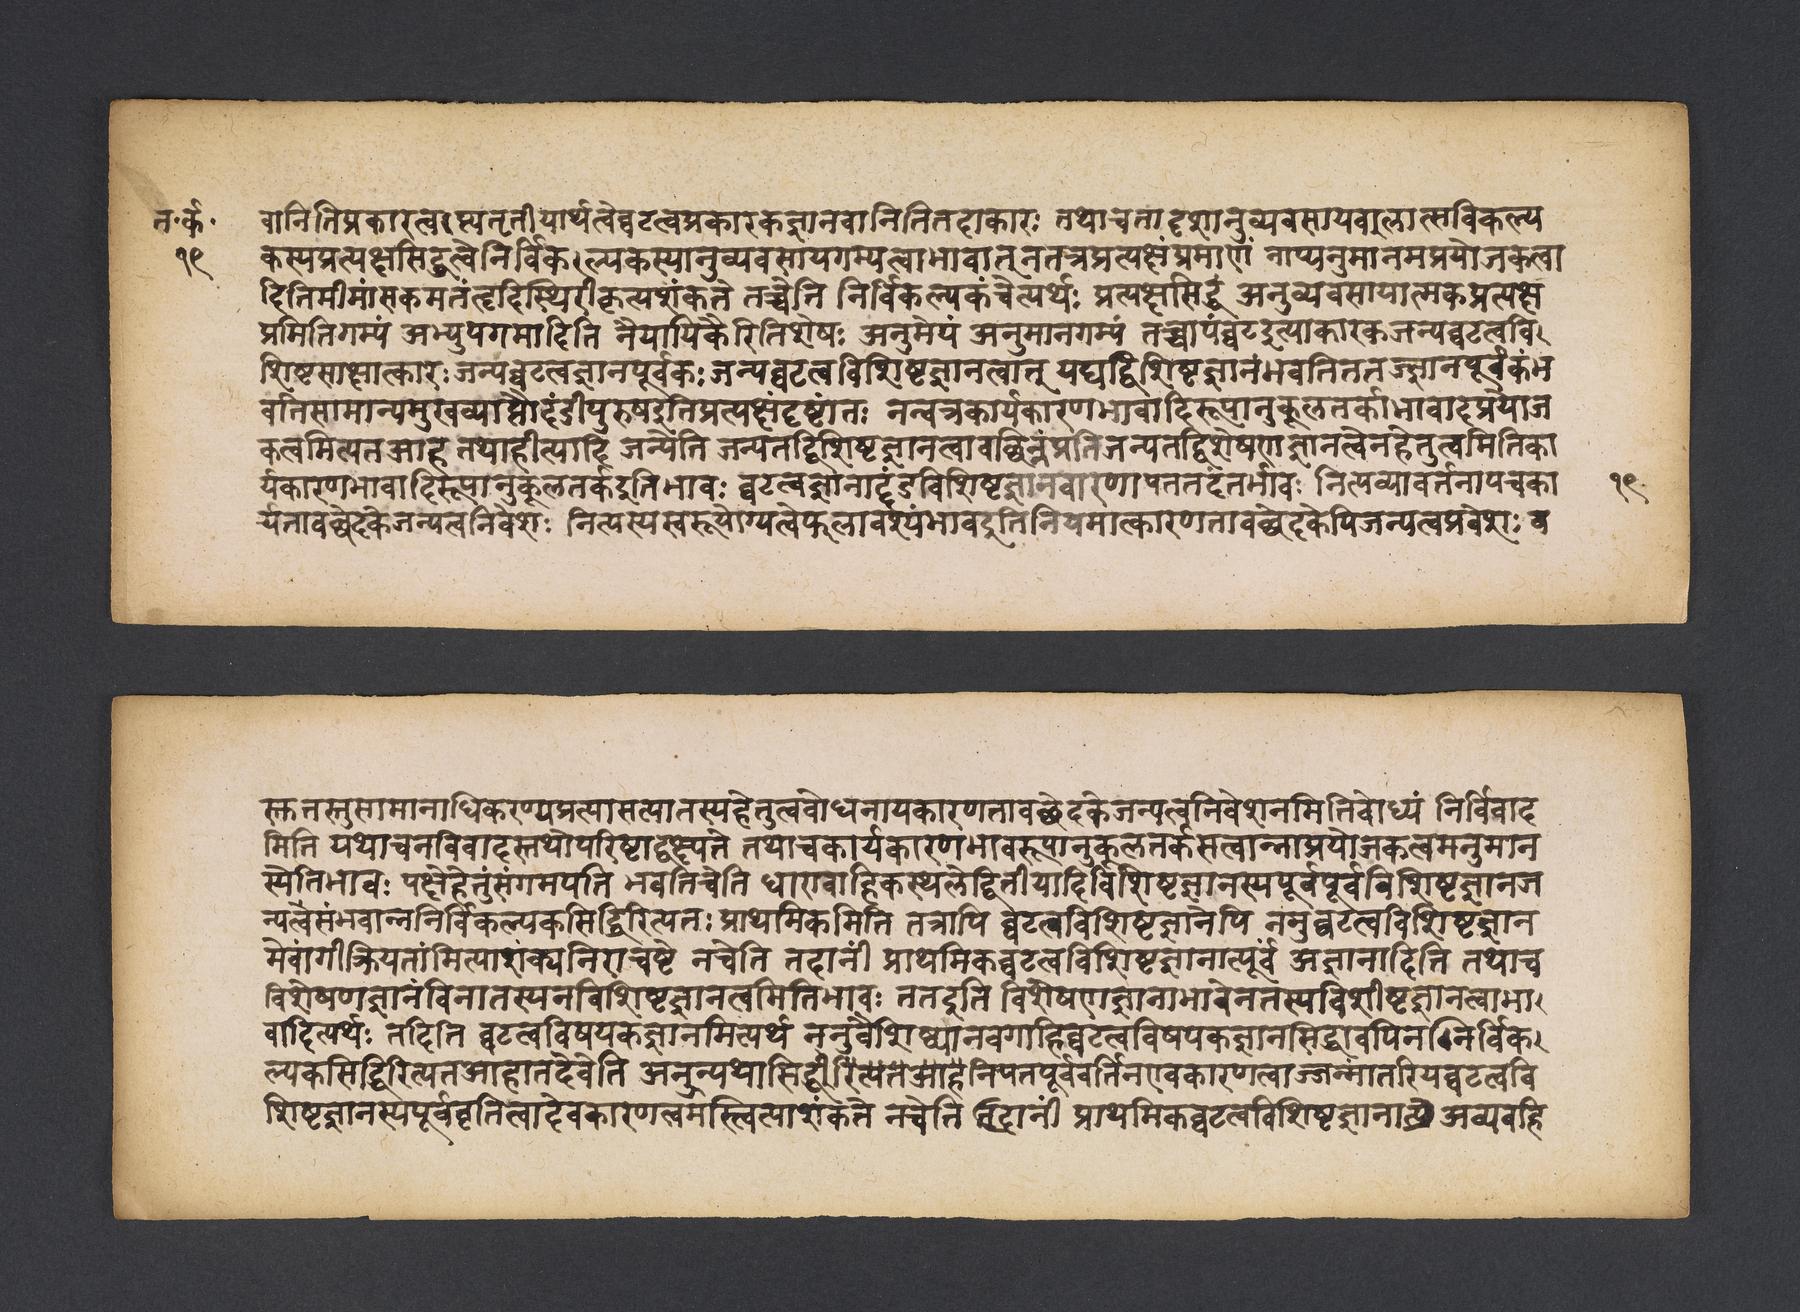 त·र्क·
१९
वानितिप्रकारत्वेऽप्यतृतीयार्थत्वेघटत्वप्रकारकज्ञानवानितितदाकारः तथाचैतादृशानुव्यवसायबलात्सविकल्प
कस्यप्रत्यक्षसिद्धत्वेनिर्विकल्पकस्यानुव्यवसायगम्यत्वाभावात् नतत्रप्रत्यक्षंप्रमाणं नाप्यनुमानमप्रयोजकत्वा
दितिमीमांसकमतंहृदिस्थिरीकृत्यशंकते तच्चेति निर्विकल्पकंचेत्यर्थः प्रत्यक्षसिद्धं अनुव्यवसायात्मकप्रत्यक्ष
प्रमितिगम्यं अभ्युपगमादिति नैयायिकैरितिशेषः अनुमेयं अनुमानगम्यं तच्चायंघटइत्याकारकजन्यघटत्ववि
शिष्टसाक्षात्कारःजन्यघटत्वज्ञानपूर्वकःजन्यघटत्वविशिष्टज्ञानत्वात् यद्यद्विशिष्टज्ञानंभवतिततज्ज्ञानपूर्वकंभ
वतिसामान्यमुखव्याप्तौदंडीपुरुषइतिप्रत्यक्षंदृष्टांतः नन्वत्रकार्यकारणभावादिरूपानुकूलतर्काभावादप्रयोज
कत्वमित्यतआह तथाहीत्यादि जन्येति जन्यतद्विशिष्टज्ञानत्वावच्छिन्नंप्रतिजन्यतद्विशेषणज्ञानत्वेनहेतुत्वमितिका
र्यकारणभावादिरूपानुकूलतर्कइतिभावः घटत्वज्ञानाद्दंडविशिष्टज्ञानवारणायतत्तदंतर्भावः नित्यव्यावर्तनायचका
१९
र्यतावच्छेदकेजन्यत्वनिवेशः नित्यस्यस्वरूपयोग्यत्वेफलावश्यंभावइतिनियमात्कारणतावच्छेदकेपिजन्यत्वप्रवेशः व
स्तुतस्तुसामानाधिकरण्यप्रत्यासत्यातस्यहेतुत्वबोधनायकारणतावच्छेदकेजन्यत्वनिवेशनमितिबोध्यं निर्विवाद
मिति यथाचनविवादस्तथोपरिष्टाद्वक्ष्यते तथाचकार्यकारणभावरूपानुकूलतर्कसत्वान्नाप्रयोजकत्वमनुमान
स्येतिभावः पक्षेहेतुंसंगमयति भवतिचेति धारावाहिकस्थलेद्वितीयादिविशिष्टज्ञानस्यपूर्वपूर्वविशिष्टज्ञानज
न्यत्वेसंभवान्ननिर्विकल्पकसिद्धिरित्यतः प्राथमिकमिति तत्रापि घटत्वविशिष्टज्ञानेपि ननुघटत्वविशिष्टज्ञान
मेवांगीक्रियतांमित्याशंक्यनिराचष्टे नचेति तदानीं प्राथमिकघटत्वविशिष्टज्ञानात्पूर्वं अज्ञानादिति तथाच
विशेषणज्ञानंविनातस्यनविशिष्टज्ञानत्वमितिभावः ततइति विशेषणज्ञानाभावेनतस्यविशीष्टज्ञानत्वाभा
वादित्यर्थः तदिति घटत्वविषयकज्ञानमित्यर्थ ननुवैशिष्ट्यानवगाहिघटत्वविषयकज्ञानसिद्धावपिननिर्विक
ल्पकसिद्धिरित्यतआहातदेवेति अनन्यथासिद्धीरित्यतआहनियतपूर्ववर्तिनएवकारणत्वाज्जन्मांतरियघटत्ववि
शिष्टज्ञानस्यपूर्ववृतित्वादेवकारणत्वमस्त्वित्याशंकते नचेति तदानीं प्राथमिकघटत्वविशिष्टज्ञानात्प्रा अव्यवहि